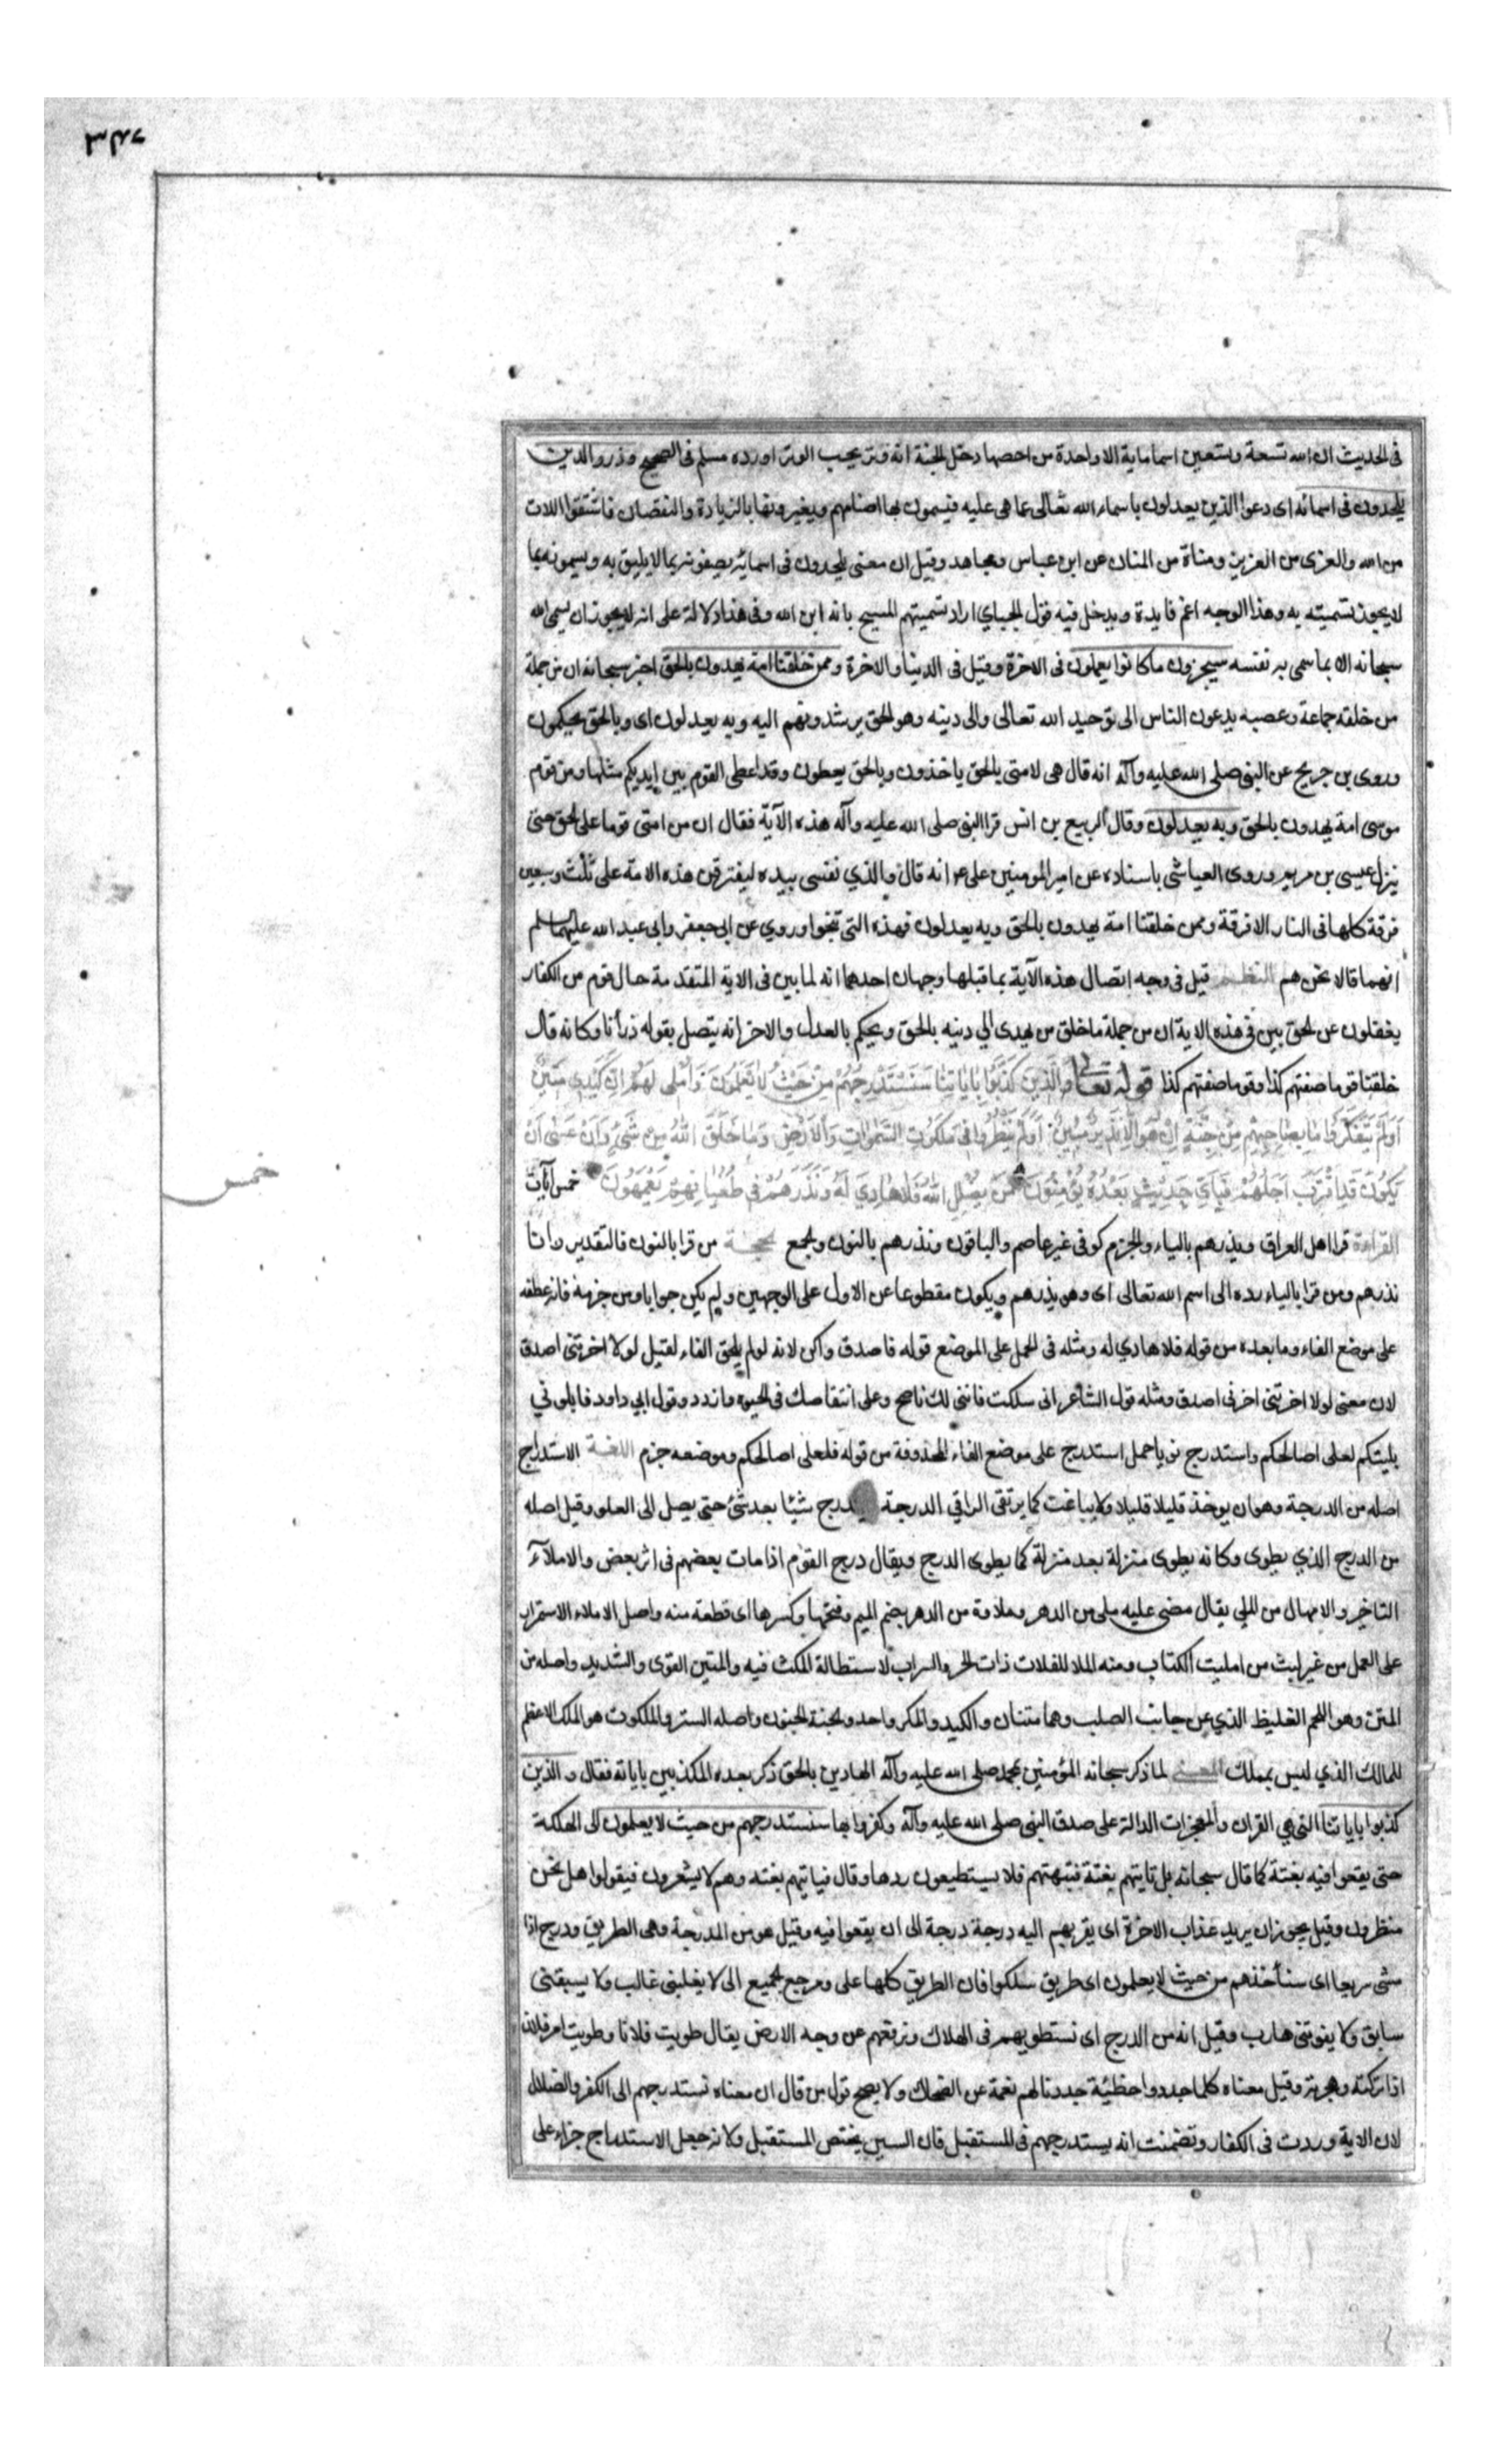 في الحديث ان الله تسعة وتسعين اسما ماية الا واحدة من احصها دخل الجنة انه وتر يحب الوتر اورده مسلم في الصحيح وذروا الذين
يلحدون في اسمائه اى دعوا الذين يعدلون باسماء الله تعالى عما هى عليه فيسمون بها اصنامهم ويغيرونها بالزيادة والنقصان فاشتقوا اللات
من الله والعزى من العزيز ومناة من المنان عن ابن عباس ومجاهد وقيل ان معنى يلحدون في اسمائه يصفونه بما لا يليق به ويسمونه بما
لا يجوز تسميته به وهذا الوجه اعم فايدة ويدخل فيه قول الجباي اراد تسميتهم المسيح بانه ابن الله وفى هذا دلالة على انه لا يجوز ان يسمى الله
سبحانه الا بما سمى به نفسه سيجزون ما كانوا يعملون فى الاخرة وقيل فى الدنيا والاخرة وممن خلقنا امة يهدون بالحق اخبر سبحانه ان من جملة
من خلقه جماعة وعصبه يدعون الناس الى توحيد الله تعالى والى دينه وهو الحق يرشدونهم اليه وبه يعدلون اى وبالحق يحكمون
وروى بن جريح عن النبى صلى الله عليه وآله انه قال هى لامتى بالحق ياخذون وبالحق يعطون وقد اعطى القوم بين ايديكم مثلها ومن قوم
موسى امة يهدون بالحق وبه يعدلون وقال الربيع بن انس قرا النبى صلى الله عليه وآله هذه الآية فقال ان من امتى قوما على الحق حتى
ينزل عيسى بن مريم وروى العياشى باسناده عن امير المومنين على انه قال والذي نفسى بيده ليفترقن هذه الامة على ثلث وسبعين
فرقة كلها فى النار الا فرقة وممن خلقنا امة يهدون بالحق وبه يعدلون فهذه التى تنجوا وروي عن ابى جعفر وابى عبد الله عليهما السلم
انهما قالا نحن هم النظم قيل فى وجه اتصال هذه الآية بما قبلها وجهان احدهما انه لما بين فى الاية المتقدمة حال قوم من الكفار
يغفلون عن الحق بين فى هذه الاية ان من جملة ما خلق من يهدى الي دينه بالحق ويحكم بالعدل والاخر انه يتصل بقوله ذرأنا وكانه قال
خلقنا قوما صفتهم كذا وقوما صفتهم كذا قوله تعالى وَالَّذِينَ كَذَّبُوا بِاٰيَاتِنَا سَنَسْتَدْرِجُهُمْ مِنْ حَيْثُ لَا يَعْلَمُونَ وَاُمْلِى لَهُمْ اِنَّ كَيْدِى مَتِينٌ
اَوَلَمْ يَتَفَكَّرُوا مَا بِصَاحِبِهِمْ مِنْ جِنَّةٍ اِنْ هُوَ اِلَّا نَذِيرٌ مُبِينٌ اَوَلَمْ يَنْظُرُوا فِى مَلَكُوتِ السَّمٰوَاتِ وَالْاَرْضِ وَمَا خَلَقَ اللهُ مِنْ شَىْءٍ وَاَنْ عَسٰى اَنْ
يَكُونَ قَدِ اقْتَرَبَ اَجَلُهُمْ فَبِاَىِّ حَدِيثٍ بَعْدَهُ يُؤْمِنُونَ مَنْ يُضْلِلِ اللهُ فَلَا هَادِيَ لَهُ وَنَذَرُهُمْ فِى طُغْيَانِهِمْ يَعْمَهُونَ خمس آيات
خمس
القراءة قرا اهل العراق ويذرهم بالياء والجزم كوفى غير عاصم والباقون ونذرهم بالنون والجمع الحجة من قرا بالنون فالتقدير وانا
نذرهم ومن قرا بالياء رده الى اسم الله تعالى اى وهو يذرهم ويكون مقطوعا عن الاول على الوجهين ولم يكن جوابا ومن جزمه فانه عطفه
على موضع الفاء وما بعده من قوله فلا هادي له ومثله فى الحمل على الموضع قوله فاصدق واكن لانه لو لم يلحق الفاء لقيل لولا اخرتنى اصدق
لان معنى لولا اخرتنى اخرنى اصدق ومثله قول الشاعر انى سلكت فاننى لك ناصح وعلى انتقاصك فى الحيوة وازدد وقول ابي داود فابلونى
بليتكم لعلى اصالحكم واستدرج نويا حمل استدرج على موضع الفاء المحذوفة من قوله فلعلى اصالحكم وموضعه جزم اللغة الاستدراج
اصله من الدرجة وهو ان يوخذ قليلا قليلا ولا يباغت كما يرتقى الراقي الدرجة شيئا بعد شئ حتى يصل الى العلو وقيل اصله
من الدرج الذي يطوى وكانه يطوى منزلة بعد منزلة كما يطوى الدرج ويقال درج القوم اذا مات بعضهم فى اثر بعض والاملآء
التاخير والامهال من الملي يقال مضى عليه ملى من الدهر وملاوة من الدهر بضم الميم وفتحها وكسرها اى قطعة منه واصل الاملاء الاستمرار
على العمل من غير لبث من امليت الكتاب ومنه الملا للفلات ذات الحر والسراب لاستطالة المكث فيه والمتين القوى والشديد واصله من
المتن وهو اللحم الغليظ الذي عن جانب الصلب وهما متنان والكيد والمكر واحد والجنة الجنون واصله الستر والملكوت هو الملك الاعظم
للمالك الذي ليس بمملك المعنى لما ذكر سبحانه المؤمنين بمحمد صلى الله عليه وآله الهادين بالحق ذكر بعده المكذبين باياته فقال والذين
كذبوا باياتنا التى هي القران والمعجزات الدالة على صدق النبى صلى الله عليه وآله وكفروا بها سنستدرجهم من حيث لا يعلمون الى الهلكة
حتى يقعوا فيه بغتة كما قال سبحانه بل تاتيهم بغتة فتبهتهم فلا يستطيعون ردها وقال فياتيهم بغتة وهم لا يشعرون فيقولوا هل نحن
منظرون وقيل يجوز ان يريد عذاب الاخرة اى يقربهم اليه درجة درجة الى ان يقعوا فيه وقيل هو من المدرجة وهى الطريق ودرج اذا
مشى سريعا اى سنأخذهم من حيث لا يعلمون اى طريق سلكوا فان الطريق كلها على ومرجع الجميع الى لا يغلبنى غالب ولا يسبقنى
سابق ولا يفوتنى هارب وقيل انه من الدرج اى نستطويهم فى الهلاك ونرفعهم عن وجه الارض يقال طويت فلانا وطويت امر فلان
اذا تركته وهجرته وقيل معناه كلما جددوا خطيئة جددنا لهم نعمة عن الضحاك ولا يصح قول من قال ان معناه نستدرجهم الى الكفر والضلال
لان الاية وردت فى الكفار وتضمنت انه يستدرجهم فى المستقبل فان السين يختص المستقبل ولانه جعل الاستدراج جزاء على